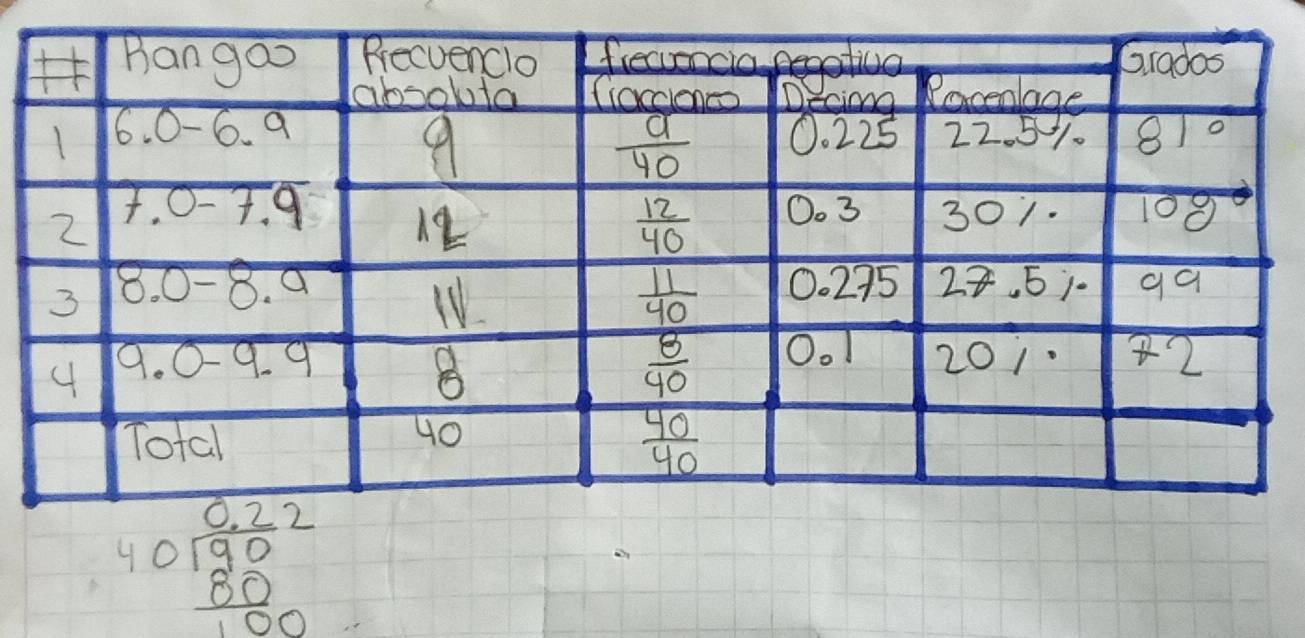 # Rangos Frecuencia absoluta frecuencia negativa Grados
fracciones Decima Porcentage
1 6.0-6.9 9 9/40 0.225 22.5% 81°
2 7.0-7.9 12 12/40 0.3 30% 108°
3 8.0-8.9 11 11/40 0.275 27.5% 99
4 9.0-9.9 8 8/40 0.1 20% 72
Total 40 40/40
0.22
40 90
80
100